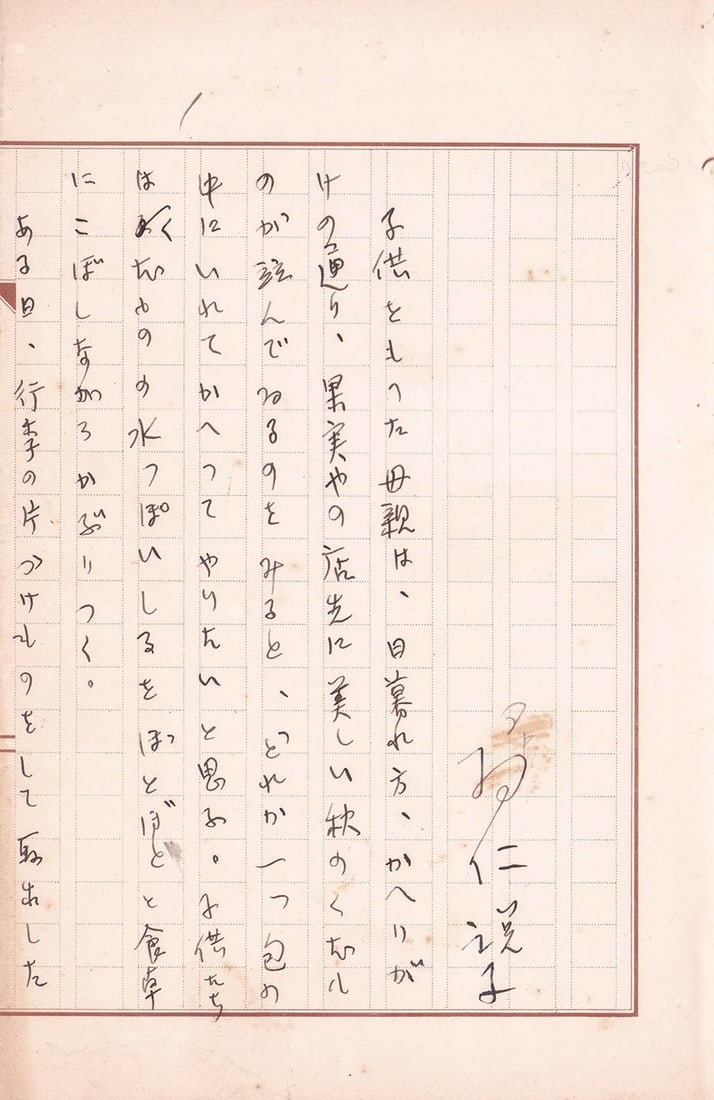 仁説子
子供をもつた母親は、日暮れ方、かへりが
けの通り、果実やの店先に美しい秋のくだも
のが並んでゐるのをみると、どれか一つ包の
中にいれてかへつてやりたいと思ふ。子供たち
は くだものの水つぽいしるをぽとぽとと食卓
にこぼしながらかぶりつく。
ある日、行李の片づけものをして取出した